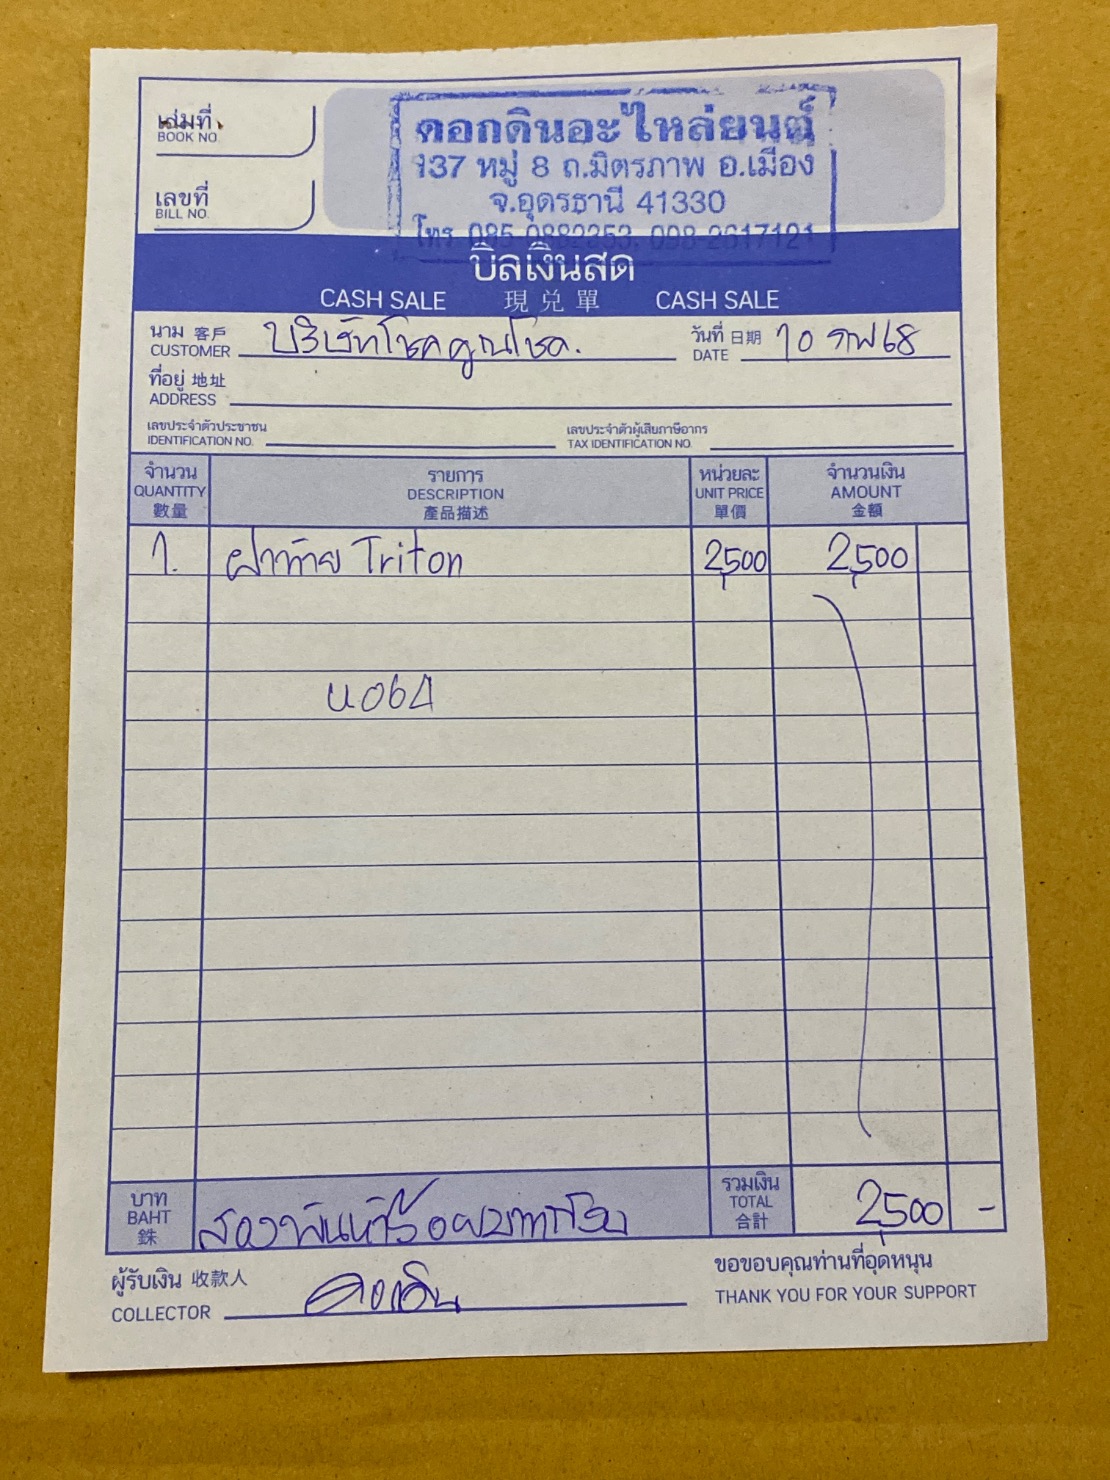 เล่มที่
BOOK NO.
เลขที่
BILL NO.
ดอกดินอะไหล่ยนต์
137 หมู่ 8 ถ.มิตรภาพ อ.เมือง
จ.อุดรธานี 41330
โทร. 085-0882253, 098-2617121
บิลเงินสด
CASH SALE 現兌單 CASH SALE
นาม 客戶 CUSTOMER บริษัทโชคคูณโชค. วันที่ 日期 DATE 10 กพ 68
ที่อยู่ 地址
ADDRESS
เลขประจำตัวประชาชน IDENTIFICATION NO. เลขประจำตัวผู้เสียภาษีอากร TAX IDENTIFICATION NO.
จำนวน QUANTITY 數量 รายการ DESCRIPTION 產品描述 หน่วยละ UNIT PRICE 單價 จำนวนเงิน AMOUNT 金額
1. ฝาท้าย Triton 2,500 2,500
บาท BAHT 銖 สองพันห้าร้อยบาทถ้วน รวมเงิน TOTAL 合計 2,500 -
ผู้รับเงิน 收款人
COLLECTOR ดอกดิน
ขอขอบคุณท่านที่อุดหนุน
THANK YOU FOR YOUR SUPPORT